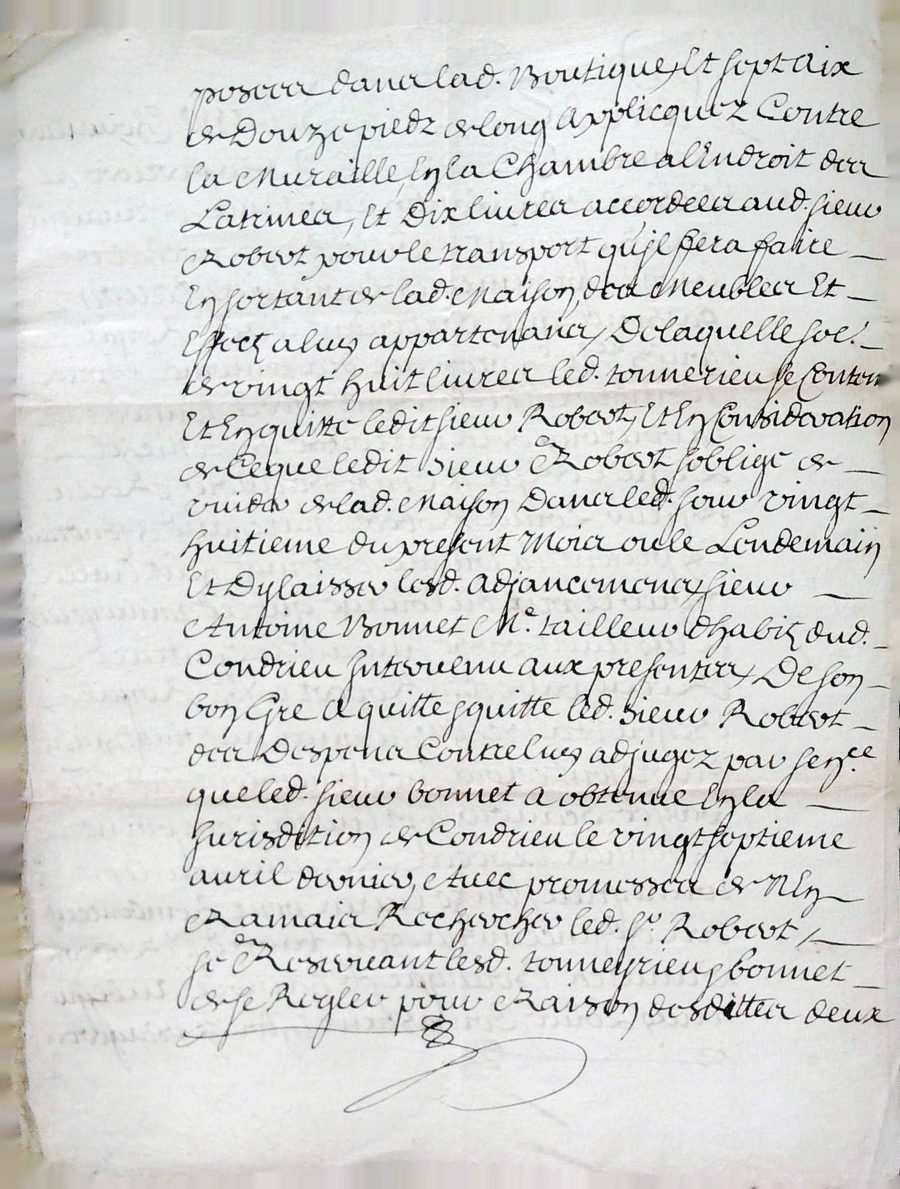 posees dans lad. Boutique, Et sept aix
de Douze piedz de long Applicquez Contre
la Muraille, En la Chambre a l'Endroit des
Latrines, Et Dix livres accordees aud. sieur
Robert pour le transport qu'il fera ffaire
En sortant de lad. Maison des Meubles Et
Effectz a luy appartenans, De laquelle so.e
de vingt huit livres led. tonnerieu se Conten
Et En quitte ledit sieur Robert, Et En Consideration
de Ce que ledit sieur Robert s'oblige de
vuider de lad. Maison Dans led. jour vingt
huitieme du present Mois ou le Lendemain
Et D'y laisser lesd. Adjancemens, sieur
Antoine Bonnet M.e tailleur d'habitz dud.
Condrieu Intervenu aux presentes, De son
bon Gre a quitte & quitte led. sieur Robert
des Despens Contre luy adjugez par sen.ce
que led. sieur bonnet a obtenue En la
Jurisdition de Condrieu le vingt septieme
avril dernier, Avec promesses de N'En
Ramais Rechercher led. s.r Robert,
se Reservant lesd. tonneyrieu & bonnet
de se Regler pour Raison desdittes deux